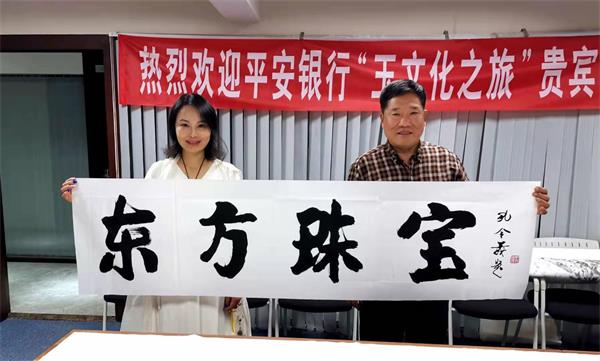 热烈欢迎平安银行“王文化之旅”贵宾
东方珠宝
孔令義题